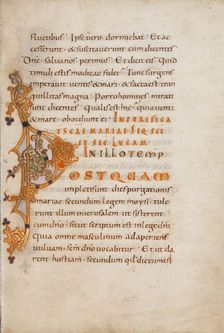 fluctibus; Ipse vero dormiebat; Et ac
cesserunt & suscitaverunt eum dicentes
Dne. salva nos perimus; Et dicit eis
timidi estis modicae fidei; Tunc surgens
imperavit ventis & mari & facta est tran
quillitas magna; Porro homines mirati
sunt dicentes Qualis est hic
& mare oboediunt ei; IN PURIFICA
T SCAE MARIAE SEQ SCI
EU SEC LUCAM
IN ILLO TEMP
POSTQUAM
impleti sunt dies purgationis
mariae secundum legem moysi; tule
runt illum in hierusalem ut sisterent
eum dno; sicut scriptum est in lege
dni; quia omne masculinum adaperiens
vulvam; scm dno vocabitur; Et ut da
rent hostiam secundum qd dictum est